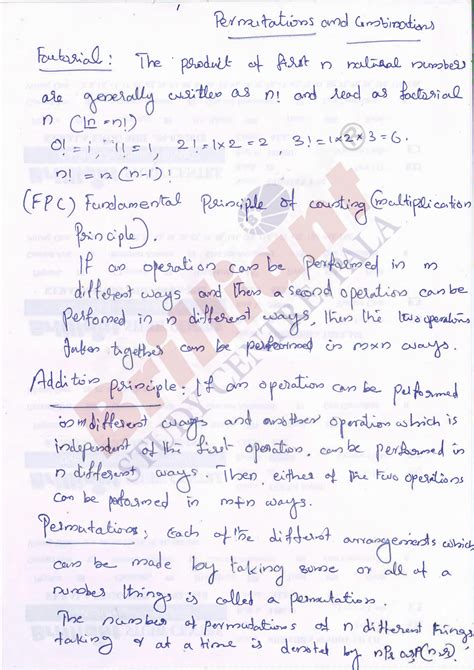 Permutations and Combinations
Factorial: The product of first n natural numbers
are generally written as n! and read as factorial
n (⌊n = n!)
0! = 1, 1! = 1, 2! = 1×2 = 2, 3! = 1×2×3 = 6.
n! = n(n-1)!
(FPC) Fundamental Principle of counting (multiplication
Principle).
If an operation can be performed in m
different ways and then a second operation can be
performed in n different ways, then the two operations
taken together can be performed in m×n ways.
Addition principle: If an operation can be performed
in m different ways and another operation which is
independent of the first operation, can be performed in
n different ways. Then, either of the two operations
can be performed in m+n ways.
Permutations: Each of the different arrangements which
can be made by taking some or all of a
number things is called a permutation.
The number of permutations of n different things
taking r at a time is denoted by nPr or P(n,r)
Brilliant
STUDY CENTRE PALA